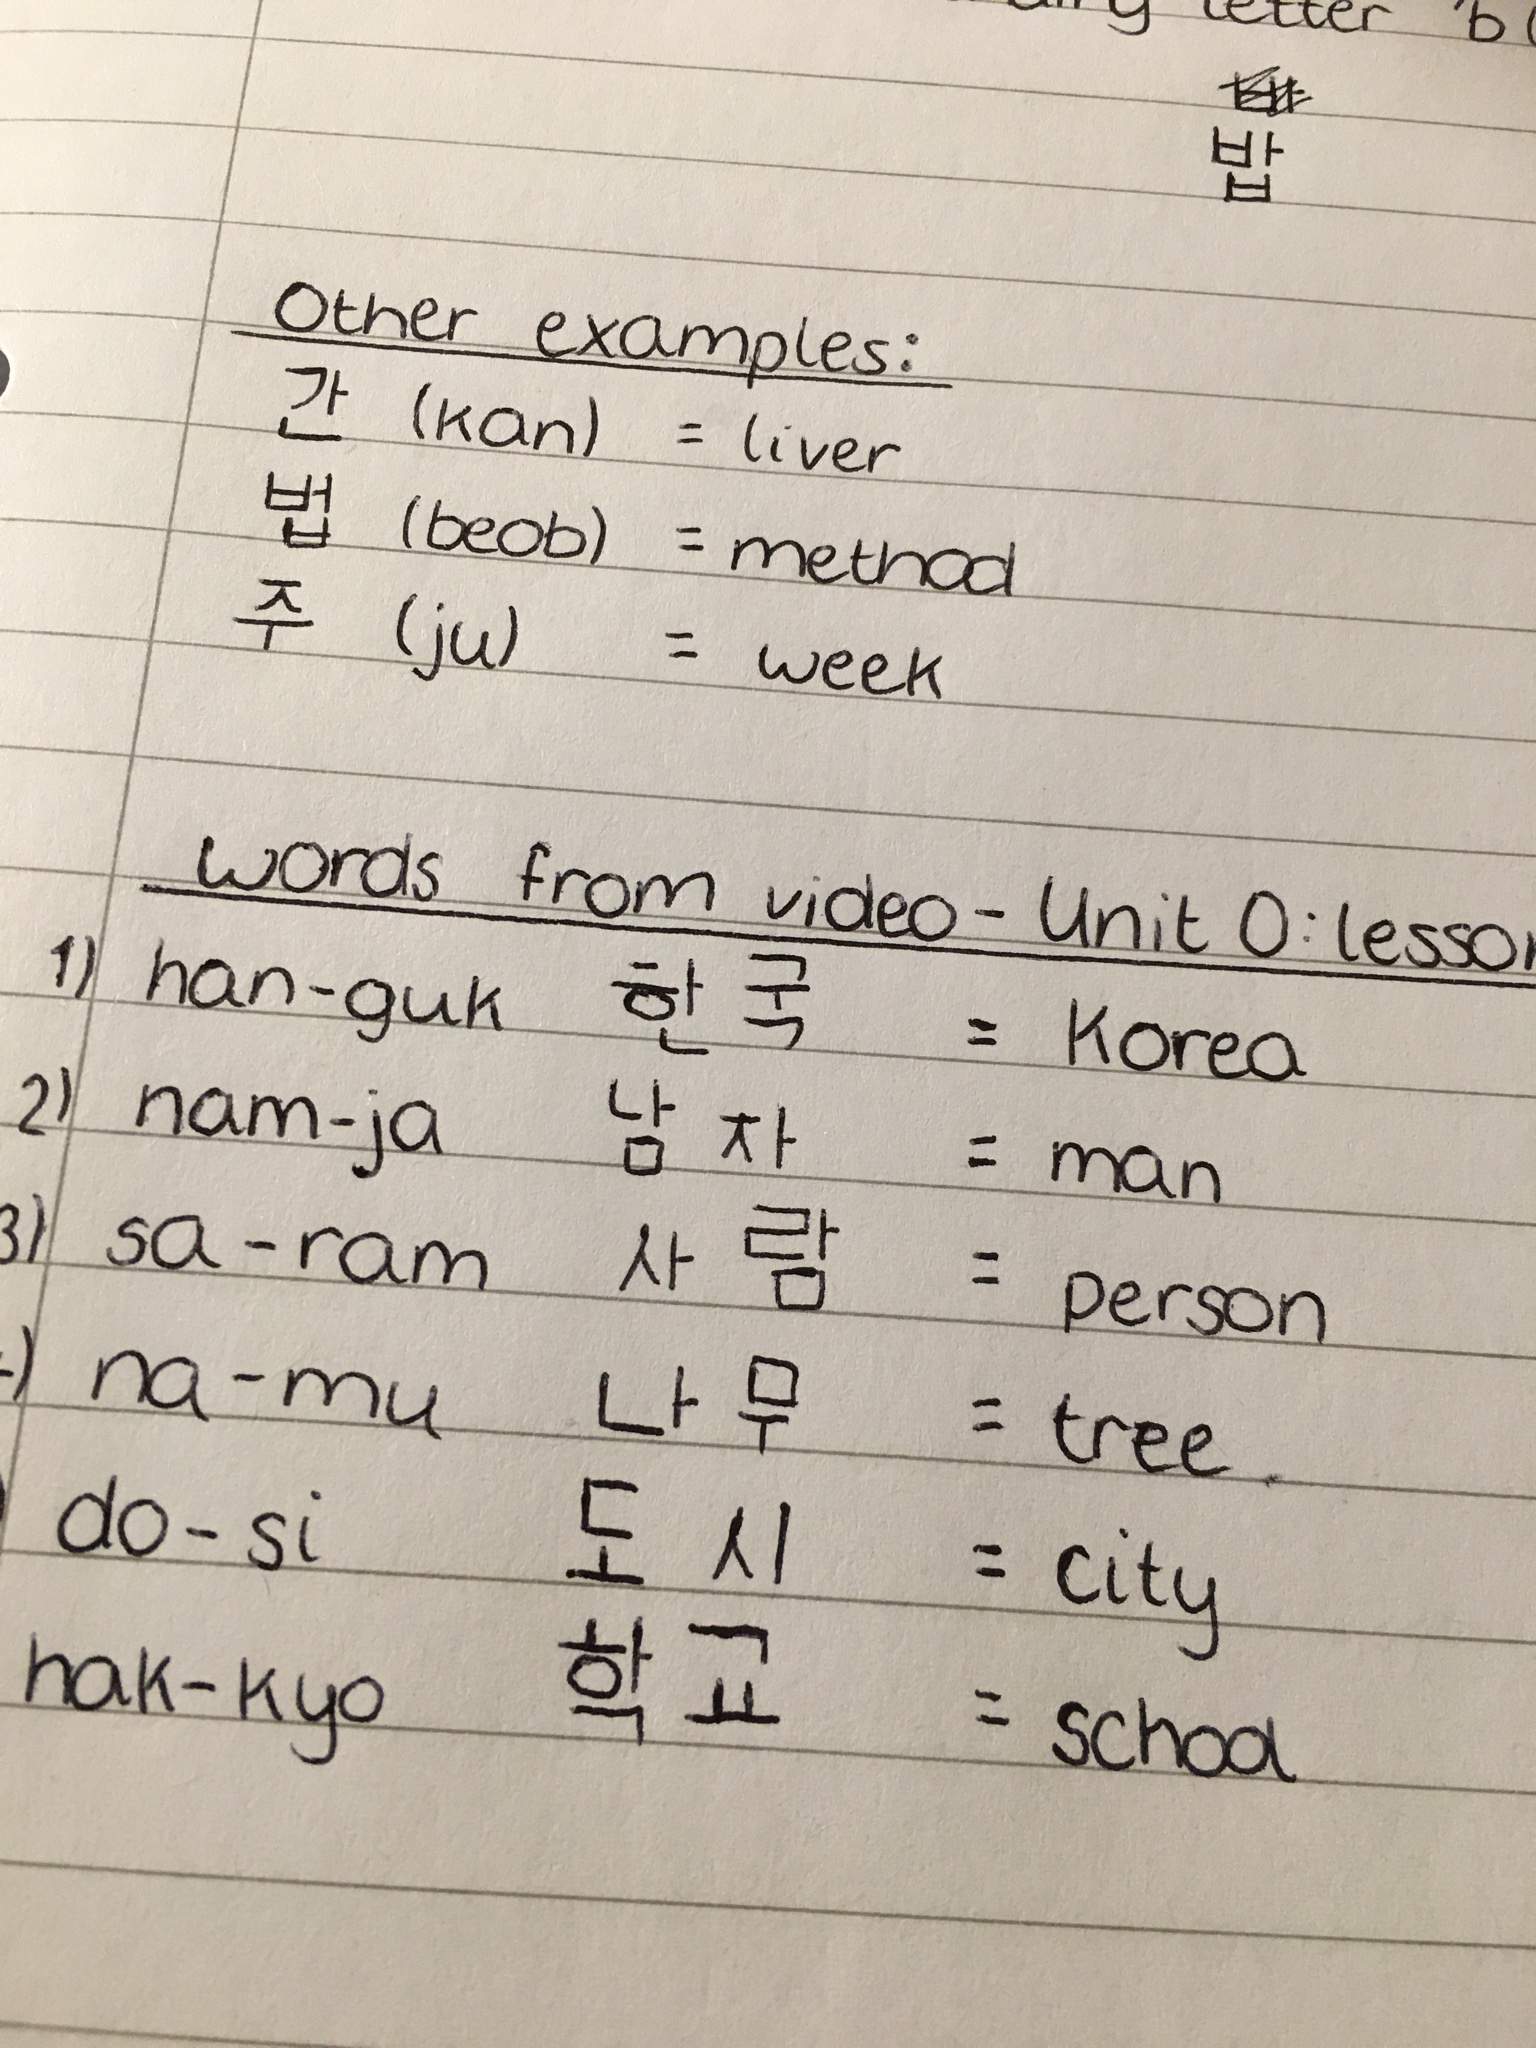 letter 'b
밥
Other examples:
간 (kan) = liver
법 (beob) = method
주 (ju) = week
words from video - Unit 0: lesson
1) han-guk 한국 = Korea
2) nam-ja 남자 = man
3) sa-ram 사람 = person
na-mu 나무 = tree
do-si 도시 = city
hak-kyo 학교 = school